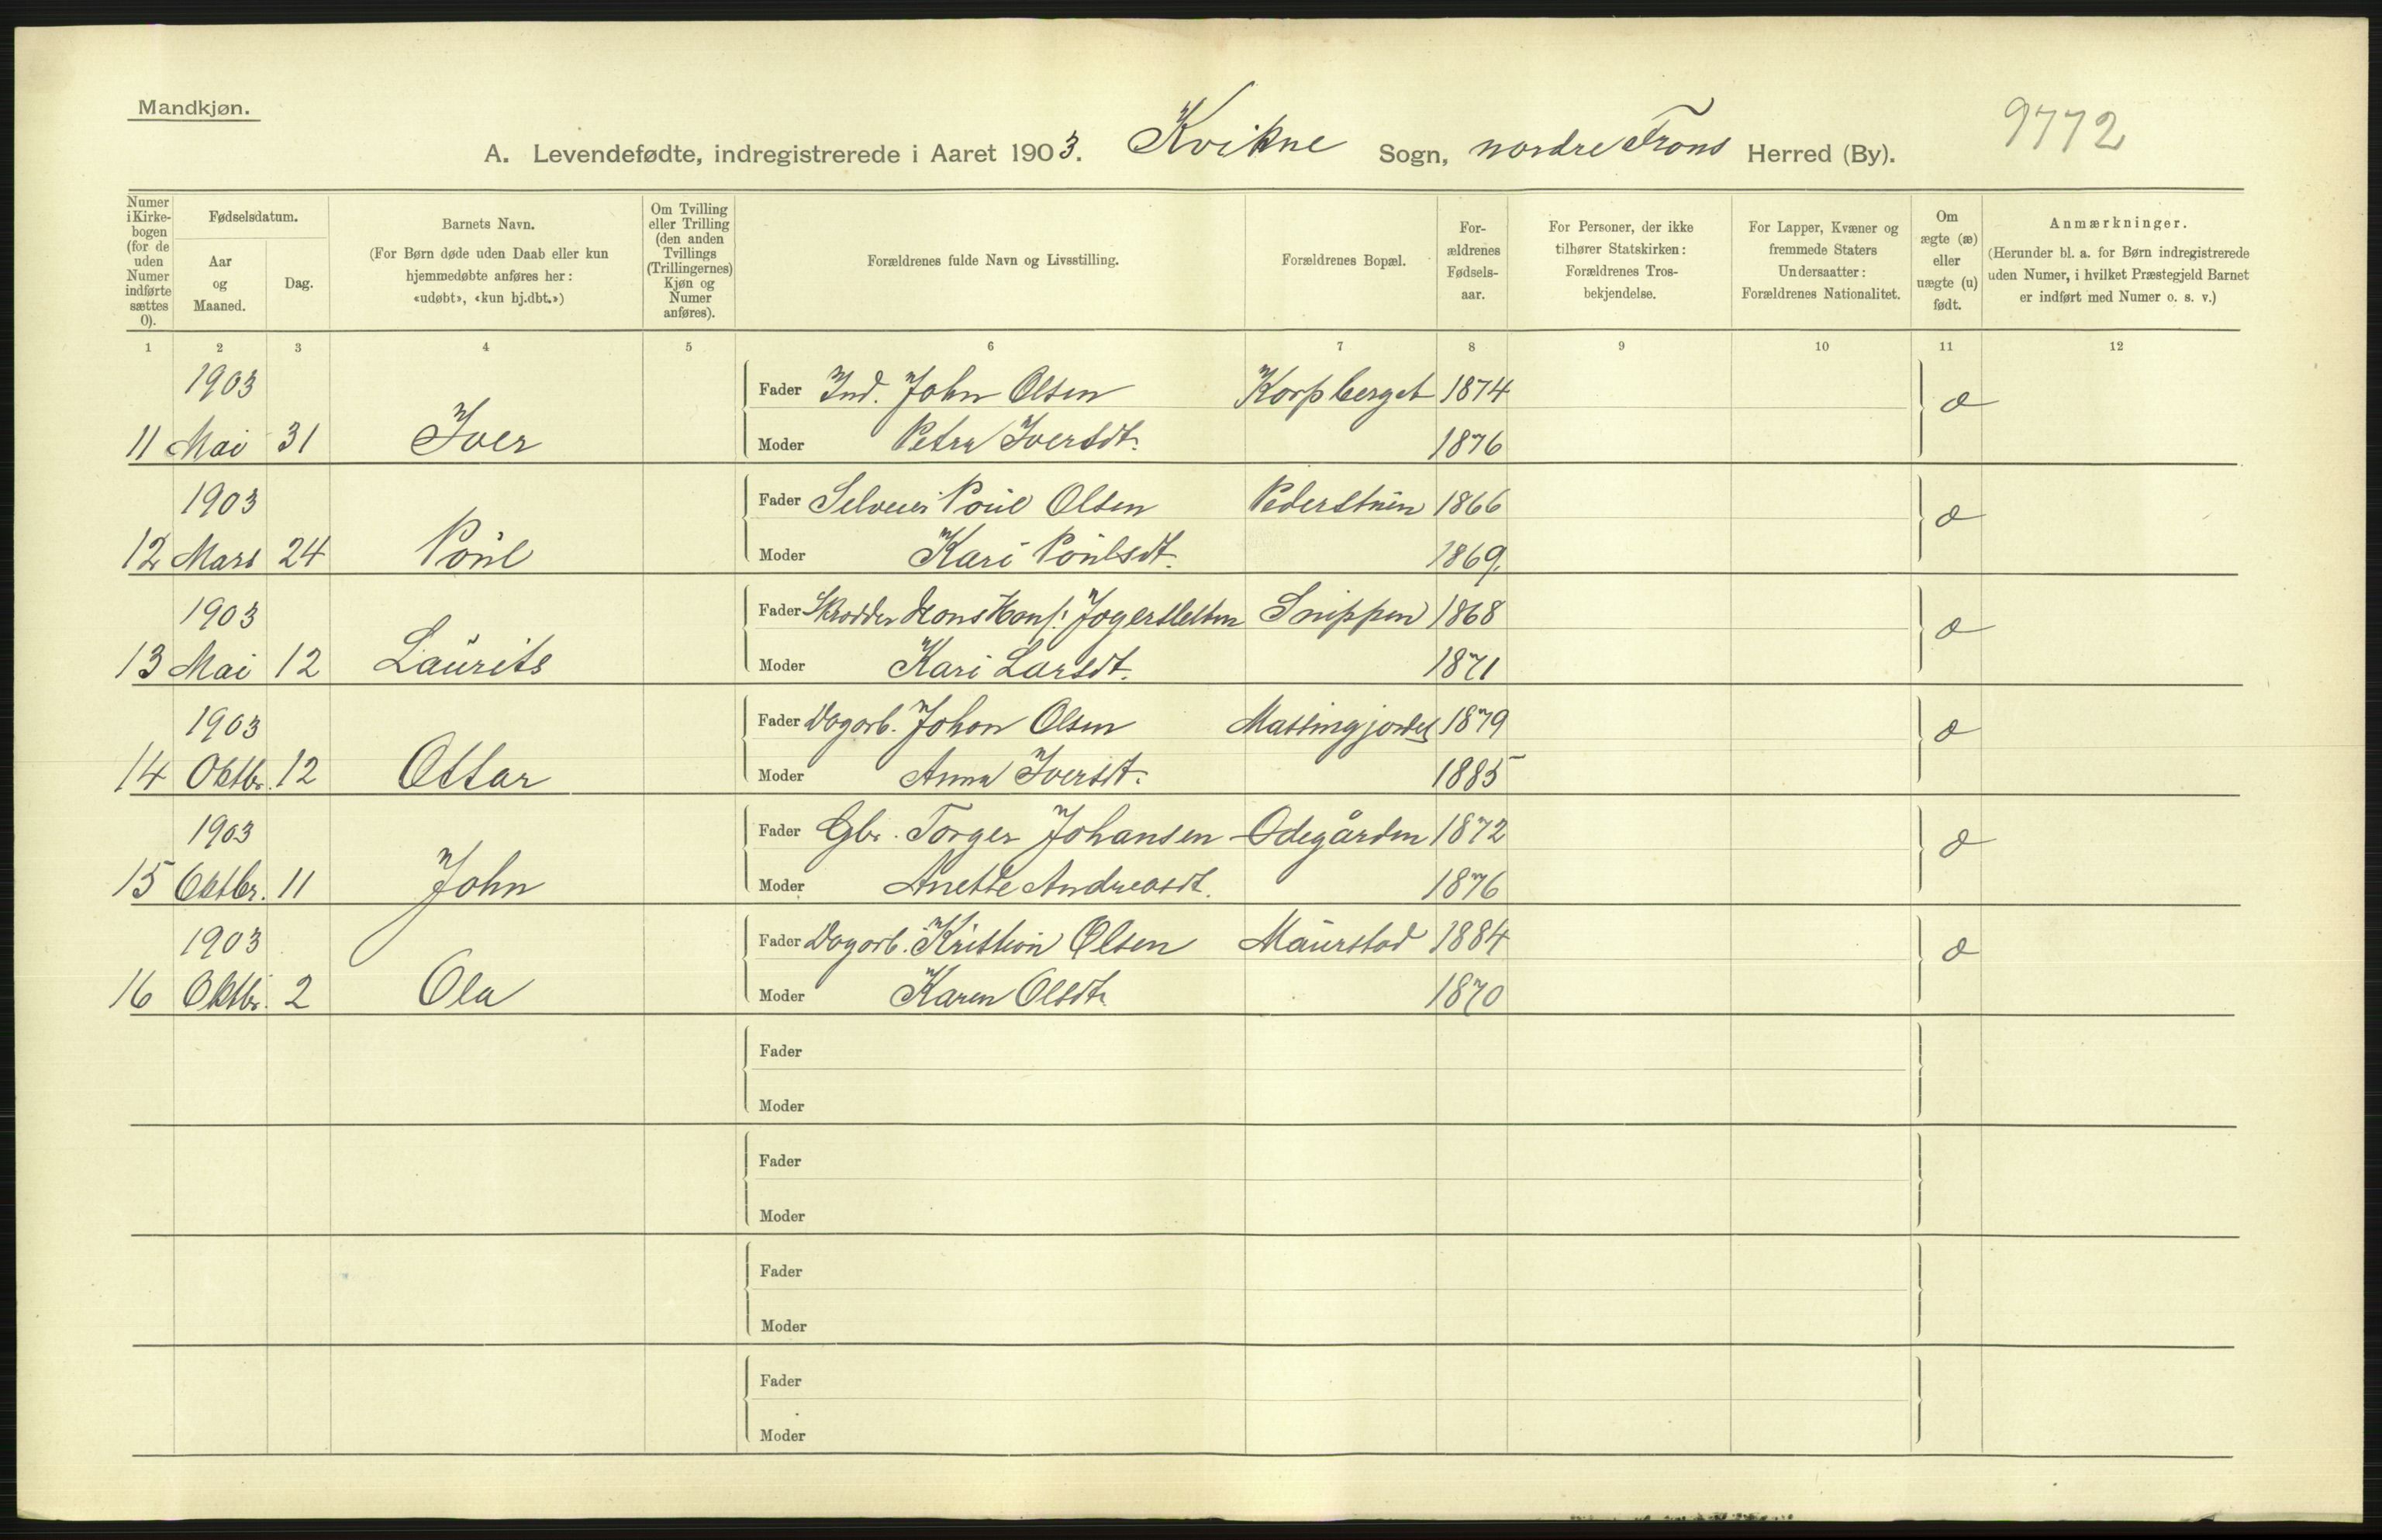 Mandkjøn.
9772
A. Levendefødte, indregistrerede i Aaret 1903. Kvikne Sogn, nordre Frons Herred (By).
Numer i Kirkebogen (for de uden Numer indførte sættes 0).
Fødselsdatum.
Aar og Maaned.
Dag.
Barnets Navn.
(For Børn døde uden Daab eller kun hjemmedøbte anføres her: «udøbt», «kun hj.dbt.»)
Om Tvilling eller Trilling (den anden Tvillings (Trillingernes) Kjøn og Numer anføres).
Forældrenes fulde Navn og Livsstilling.
Forældrenes Bopæl.
Forældrenes Fødselsaar.
For Personer, der ikke tilhører Statskirken: Forældrenes Trosbekjendelse.
For Lapper, Kvæner og fremmede Staters Undersaatter: Forældrenes Nationalitet.
Om ægte (æ) eller uægte (u) født.
Anmærkninger.
(Herunder bl. a. for Børn indregistrerede uden Numer, i hvilket Præstegjeld Barnet er indført med Numer o. s. v.)
1 2 3 4 5 6 7 8 9 10 11 12
1903 Fader Ind. John Olsen Korpberget 1874 æ
11 Mai 31 Iver Moder Petra Iversdt. 1876
1903 Fader Selveier Poul Olsen Pederstuen 1866 æ
12 Mars 24 Poul Moder Kari Poulsdt. 1869.
1903 Fader Skrædder Hans Hans. Snippen 1868 æ
13 Mai 12 Laurits Moder Kari Larsdt. 1871
1903 Fader Dagarb. Johan Olsen 1879 æ
14 Oktbr. 12 Ottar Moder Anna Iversdt. 1885
1903 Fader Gbr. Torger Johansen Ødegården 1872 æ
15 Oktbr. 11 John Moder Anette Andreasdt. 1876
1903 Fader Dagarb. Kristian Olsen Maurstad 1884 æ
16 Oktbr. 2 Ola Moder Karen Olsdt. 1870
Fader
Moder
Fader
Moder
Fader
Moder
Fader
Moder